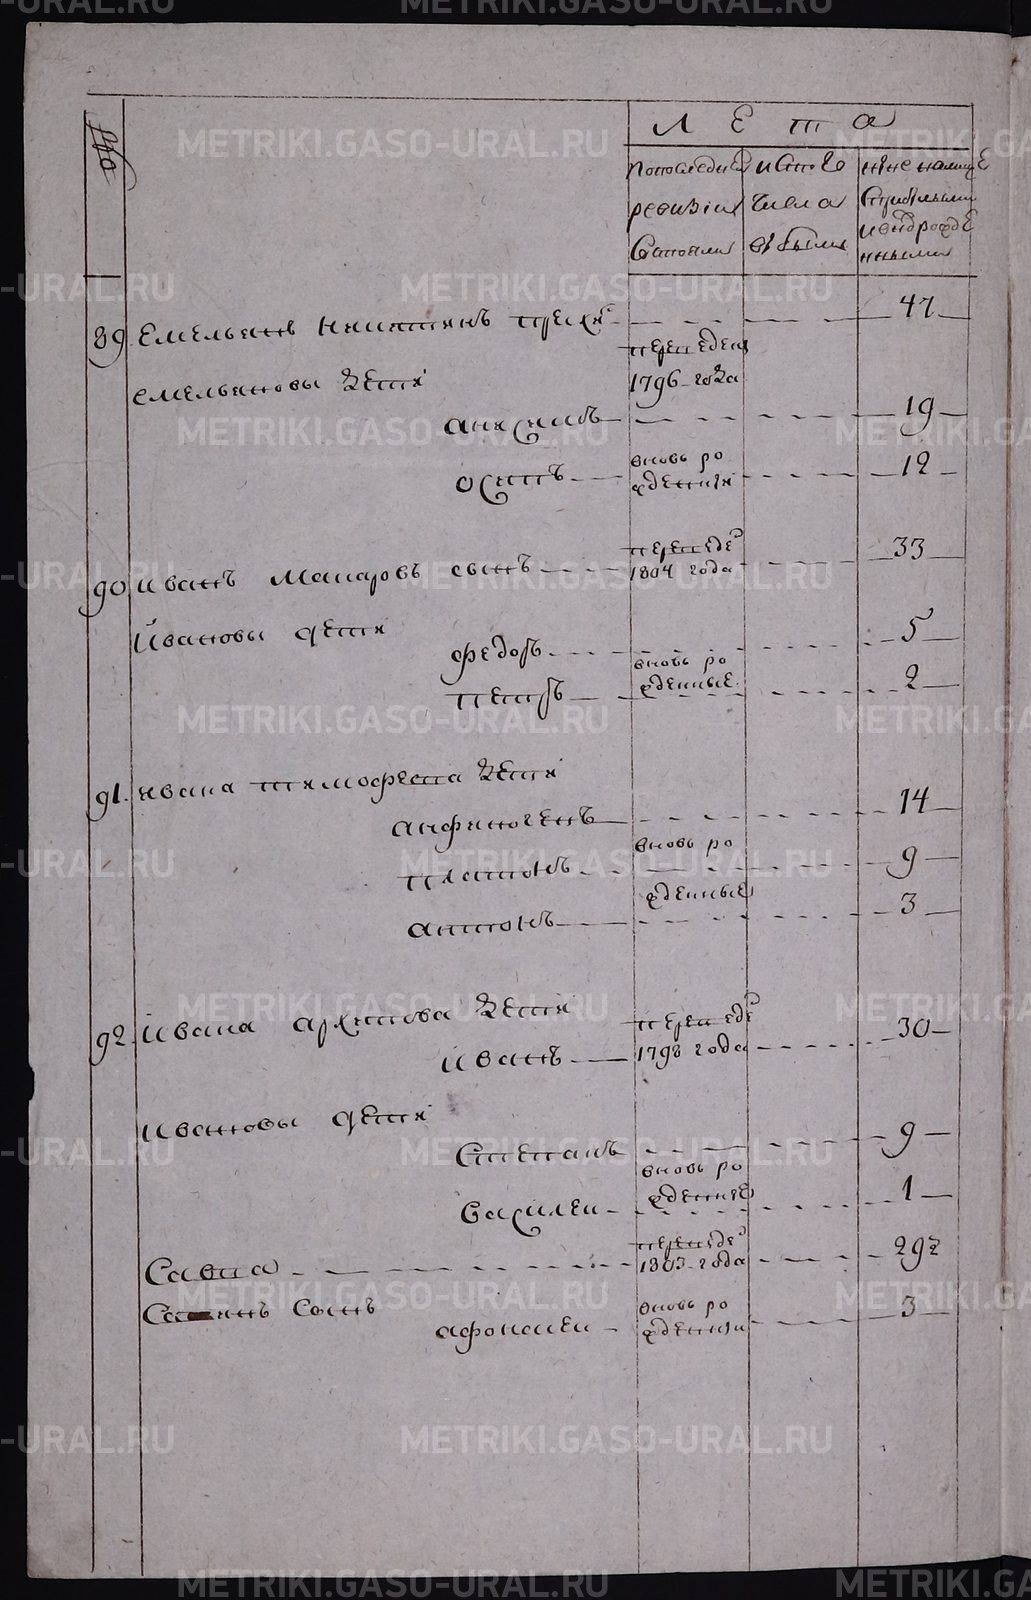 Лета
№
по последней ревизии состояли
ис того числа выбыли
ныне налице с прибылыми и внов рожденными
89 Емельянъ Никитинъ 47
переведен
Емельяновы дети 1796 года
Анисимъ 19
Осипъ вновь рожденныя 12
90 Иванъ Макаровъ сынъ переведе 1804 года 33
Ивановы дети
Федоръ 5
вновь рожденные
Петръ 2
91. Ивана Тимофеева дети
Анфиногенъ 14
вновь ро
Платонъ 9
жденные
Антонъ 3
92. Ивана Архипова дети переведе
Иванъ 1798 года 30
Ивановы дети
Степанъ 9
вновь рожденные
Василеи 1
переведе
Савва 1803 года 29½
Саввинъ сынъ
Афонасеи вновь рожденныи 3
METRIKI.GASO-URAL.RU